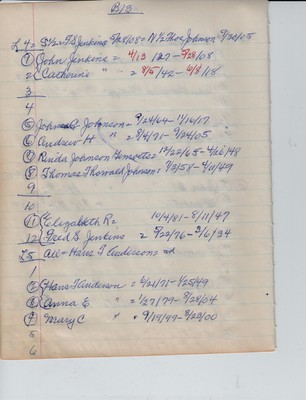 B/3
L 4 = S½ = F.S Jenkins 9/28/08 = N½ Thos Johnson 9/30/05
① John Jenkins = 4/13/27 - 9/28/08
2 Catherine " = 8/5/42 - 6/8/18
3
4
⑤ John Johnson = 9/24/64 - 11/16/17
⑥ Andrew H " = 8/4/71 - 9/24/05
⑦ Johnson 10/22/65 - 4/26/48
⑧ Thomas Thorwald Johnson = 9/3/58 - 4/11/49
9
10
⑪ Elizabeth R = 10/4/81 - 8/11/47
12 Fred S. Jenkins = 5/23/76 - 3/6/34
L5 All = Hans T Anderson =
1
② Hans T Anderson = 6/21/71 - 1/25/49
③ Anna E " = 1/27/79 - 9/28/04
④ Mary C " = 9/19/99 - 8/20/00
5
6